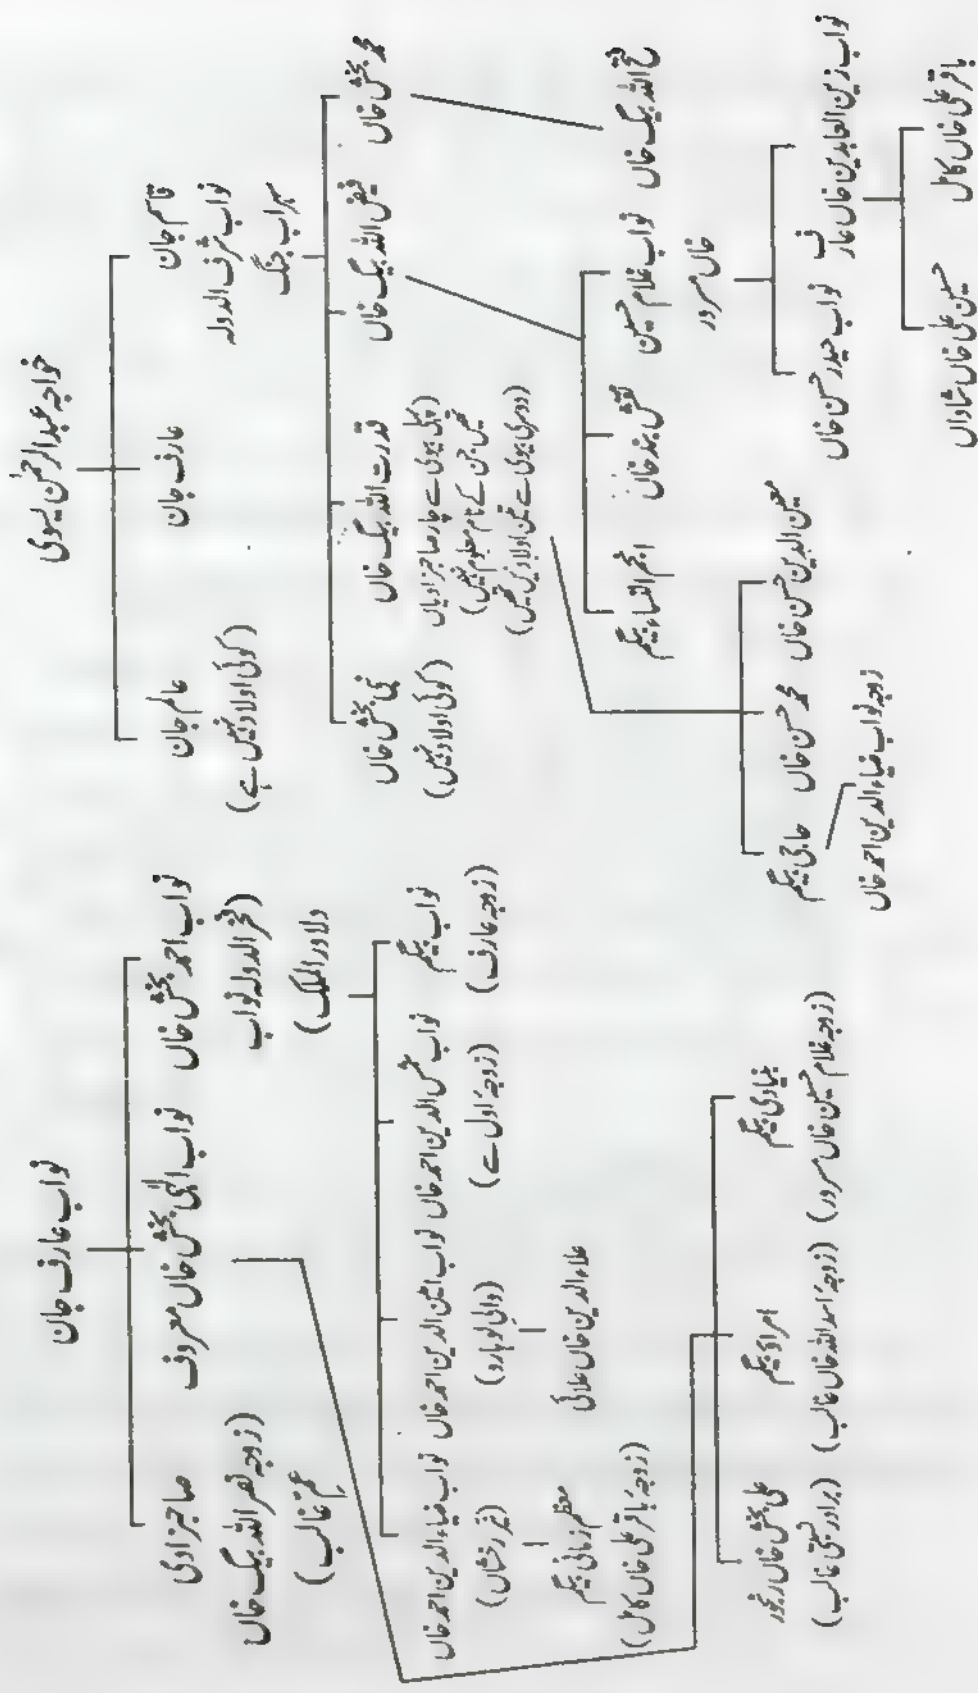 خواجہ عبدالرحمٰن یسوی
قاسم جان
نواب شرف الدولہ
سہراب جنگ
عارف جان
عالم جان
(کوئی اولاد نہیں ہے)
محمد بخش خاں
فیض اللہ بیگ خاں
قدرت اللہ بیگ خاں
(پہلی بیوی سے چار صاحبزادیاں
تھیں جن کے نام معلوم نہیں)
(دوسری بیوی سے تین اولادیں تھیں)
نبی بخش خاں
(کوئی اولاد نہیں)
فتح اللہ بیگ خاں
نواب غلام حسین
خاں مسرور
نقش بند خاں
امجم النساء بیگم
نواب زین العابدین خاں عار
ف
نواب حیدر حسن خاں
باقر علی خاں کامل
حسین علی خاں شاداں
معین الدین حسن خاں
محمد حسن خاں
حاجی بیگم
زوجہ نواب ضیاء الدین احمد خاں
نواب عارف جان
نواب احمد بخش خاں
(فخر الدولہ نواب
دلاور الملک)
نواب الٰہی بخش خاں معروف
صاحبزادی
(زوجہ نصر اللہ بیگ خاں
عم غالب)
نواب بیگم
(زوجہ عارف)
نواب شمس الدین احمد خاں
(زوجۂ اول سے)
نواب امین الدین احمد خاں
(والی لوہارو)
علاء الدین خاں علائی
نواب ضیاء الدین احمد خاں
(نیر رخشاں)
معظم زمانی بیگم
(زوجۂ باقر علی خاں کامل)
بنیادی بیگم
(زوجہ غلام حسین خاں مسرور)
امراؤ بیگم
(زوجۂ اسد اللہ خاں غالب)
علی بخش خاں رنجور
(برادر نسبتی غالب)